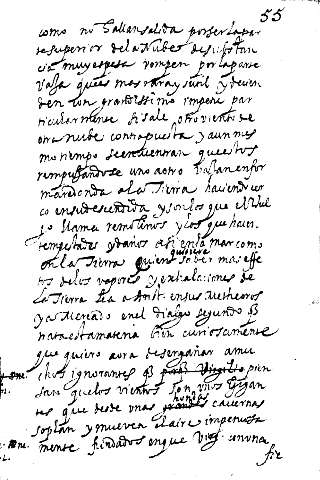 55
como no hallan salida por ser la par
te superior de la Nube de substan
cia muy espesa rompen por la parte
vaja que es mas rara y sutil y decien
den con grandissimo impetu par
ticularmente si sale otro viento de
otra nube contrapuesta y a un mes
mo tiempo se encuentran que estos
rempujandose uno a otro vajan en for
ma redonda a la Tierra haciendo
co en su descendida y son los que el vul
go llama remolinos y los que hacen
tempestades y daños asi en la mar como
en la Tierra quien quisiere saber mas effe
tos de los vapores y exhalaciones de
la Tierra lea a Arist. en sus Metheoros
y a s Merçado en el dialgo segundo q̃
trata esta materia bien curiosamente
que quiero aora desengañar a mu
chos ignorantes q̃ por Virgilio pien
san que los vientos son unos Gigan
tes que desde unas grandes hondas cavernas
soplan y mueven el aire impetuosa
mente fundados en que Virg. en una
fic